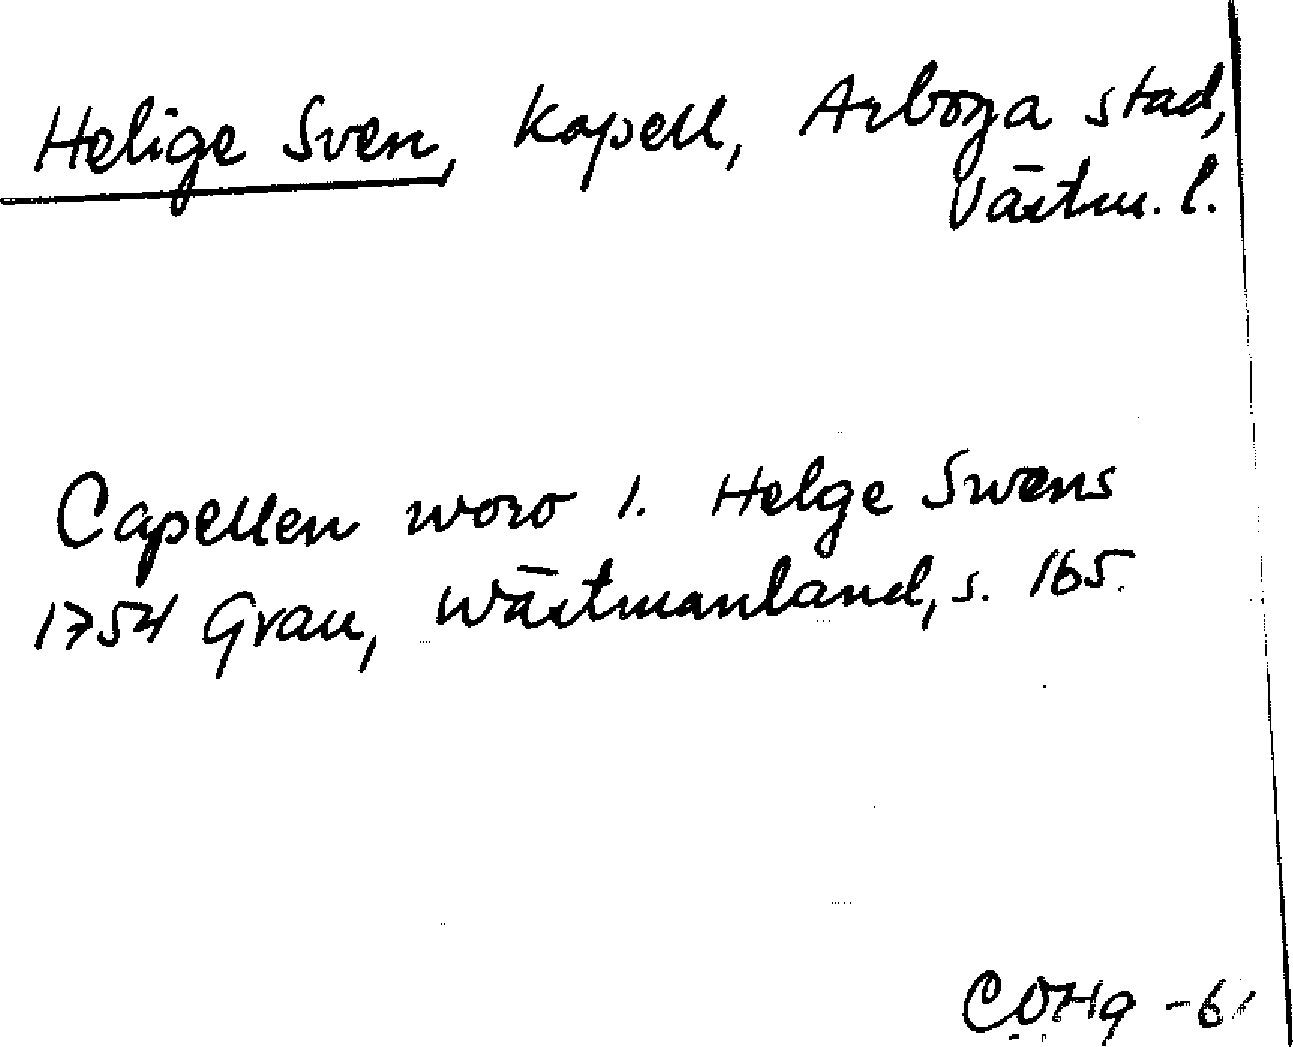 Helige Sven, kapell, Arboga stad,
Västm. l.
Capellen woro 1. Helge Swens
1754 Grau, Wästmanland, s. 165.
COHg -61